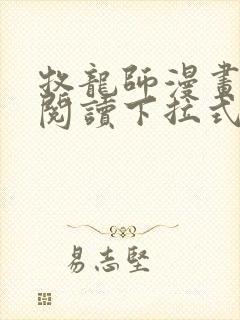 牧龍師漫畫
閱讀下拉式
易志堅